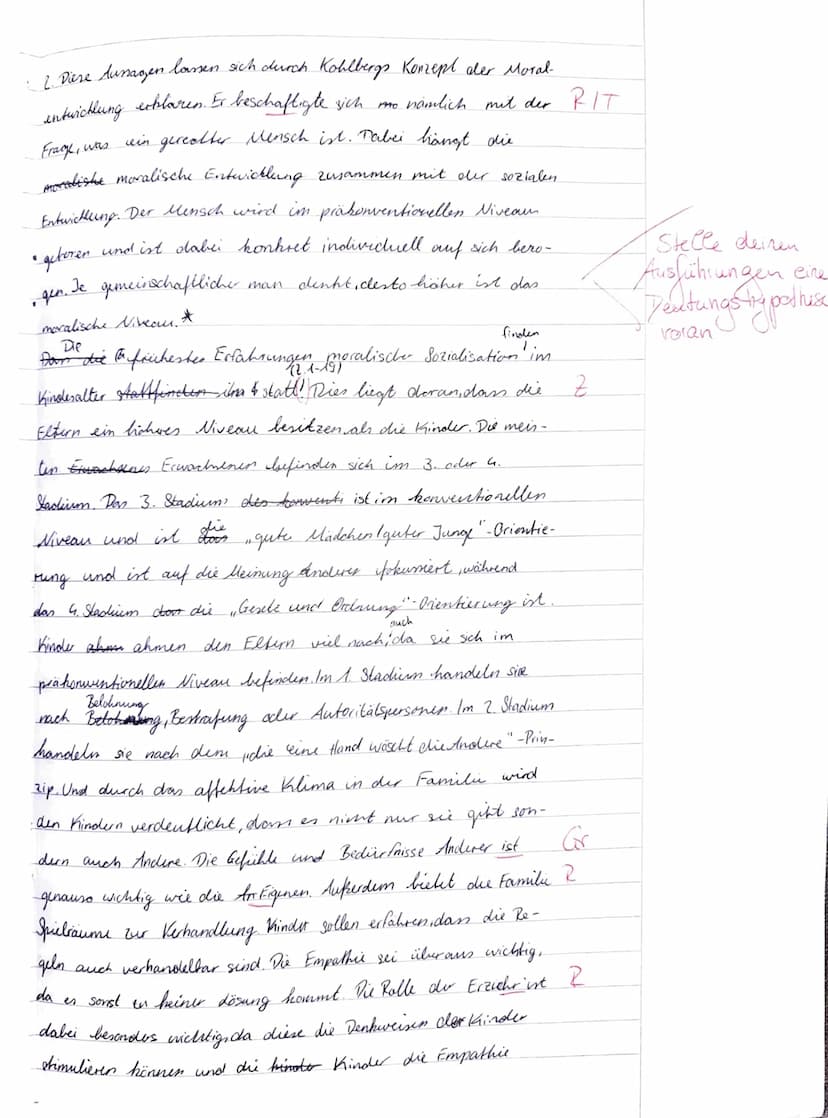 2. Diese Aussagen lassen sich durch Kohlbergs Konzept der Moral-
entwicklung erklären. Er beschäftigte sich nämlich mit der R/T
Frage, was ein gerechter Mensch ist. Dabei hängt die
moralische moralische Entwicklung zusammen mit der sozialen
Entwicklung. Der Mensch wird im präkonventionellen Niveau
geboren und ist dabei konkret individuell auf sich bezo-
gen. Je gemeinschaftlicher man denkt, desto höher ist das
moralische Niveau.*
Stelle deinen
Ausführungen eine
Deutungshypothese
voran
Die frühesten Erfahrungen moralischer Sozialisation finden im
Kindesalter stattfinden statt! (Z. 1-19) Dies liegt daran, dass die Z
Eltern ein höheres Niveau besitzen, als die Kinder. Die meis-
ten Erwachsenen befinden sich im 3. oder 4.
Stadium. Das 3. Stadium ist im konventionellen
Niveau und ist die „gute Mädchen/guter Junge"-Orientie-
rung und ist auf die Meinung Anderer fokussiert, während
das 4. Stadium die „Gesetz und Ordnung"-Orientierung ist.
Kinder ahmen den Eltern viel nach, da sie sich auch im
präkonventionellen Niveau befinden. Im 1. Stadium handeln sie
nach Belohnung, Bestrafung oder Autoritätspersonen. Im 2. Stadium
handeln sie nach dem „die eine Hand wäscht die Andere"-Prin-
zip. Und durch das affektive Klima in der Familie wird
den Kindern verdeutlicht, dass es nicht nur sie gibt son-
dern auch Andere. Die Gefühle und Bedürfnisse Anderer ist Gr
genauso wichtig wie die Eigenen. Außerdem bietet die Familie R
Spielräume zur Verhandlung. Kinder sollen erfahren, dass die Re-
geln auch verhandelbar sind. Die Empathie sei überaus wichtig,
da es sonst zu keiner Lösung kommt. Die Rolle der Erzieher ist R
dabei besonders wichtig, da diese die Denkweisen der Kinder
stimulieren können und die Kinder die Empathie